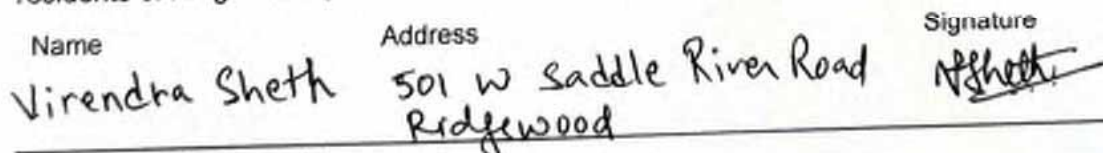 Name Address Signature
Virendra Sheth 501 W Saddle River Road
Ridgewood